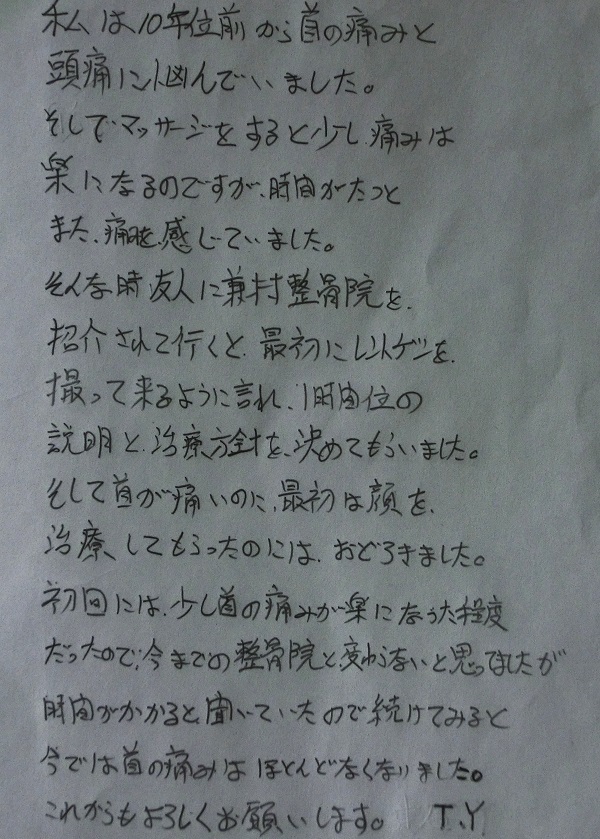 私は、10年位前から首の痛みと
頭痛に、悩んでいました。
そしてマッサージをすると少し、痛みは
楽になるのですが、時間がたつと
また、痛みを、感じていました。
そんな時友人に兼村整骨院を、
紹介されて行くと、最初にレントゲンを、
撮って来るように言われ、1時間位の
説明と、治療方針を、決めてもらいました。
そして首が痛いのに、最初は顔を、
治療してもらったのには、おどろきました。
初回には、少し首の痛みが楽になった程度
だったので、今までの整骨院と変わらないと思ってましたが
時間がかかると、聞いていたので続けてみると
今では首の痛みはほとんどなくなりました。
これからもよろしくお願いします。 T.Y